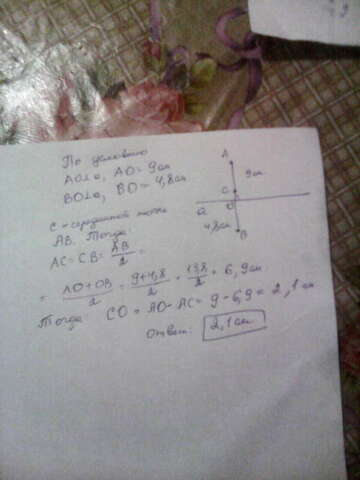 По условию
AO⊥a, AO = 9см
BO⊥a, BO = 4,8см
C - середина
AB. Тогда
AC = CB = AB/2 =
= AO+OB/2 = 9+4,8/2 = 13,8/2 = 6,9см.
Тогда CO = AO - AC = 9 - 6,9 = 2,1см
Ответ: 2,1см
A
9см
C
a
O
4,8см
B